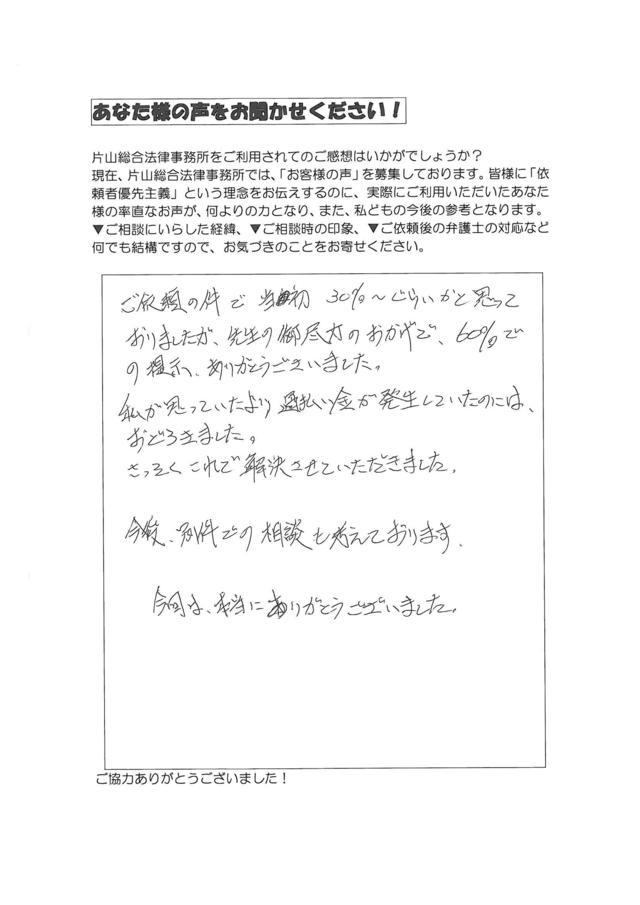 あなた様の声をお聞かせください！
片山総合法律事務所をご利用されてのご感想はいかがでしょうか？
現在、片山総合法律事務所では、「お客様の声」を募集しております。皆様に「依
頼者優先主義」という理念をお伝えするのに、実際にご利用いただいたあなた
様の率直なお声が、何よりの力となり、また、私どもの今後の参考となります。
▼ご相談にいらした経緯、▼ご相談時の印象、▼ご依頼後の弁護士の対応など
何でも結構ですので、お気づきのことをお寄せください。
ご依頼の件で当初 30%～ぐらいかと思って
おりましたが、先生の御尽力のおかげで、60%で
の提示、ありがとうございました。
私が思っていたより過払い金が発生していたのには、
おどろきました。
さっそくこれで解決させていただきました。
今後、別件での相談も考えております。
今回は、本当にありがとうございました。
ご協力ありがとうございました！